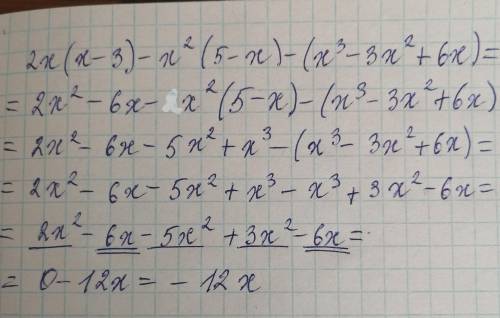 2x(x-3)-x²(5-x)-(x³-3x²+6x)=
=2x²-6x-x²(5-x)-(x³-3x²+6x)
=2x²-6x-5x²+x³-(x³-3x²+6x)=
=2x²-6x-5x²+x³-x³+3x²-6x=
=2x²-6x-5x²+3x²-6x=
=0-12x=-12x